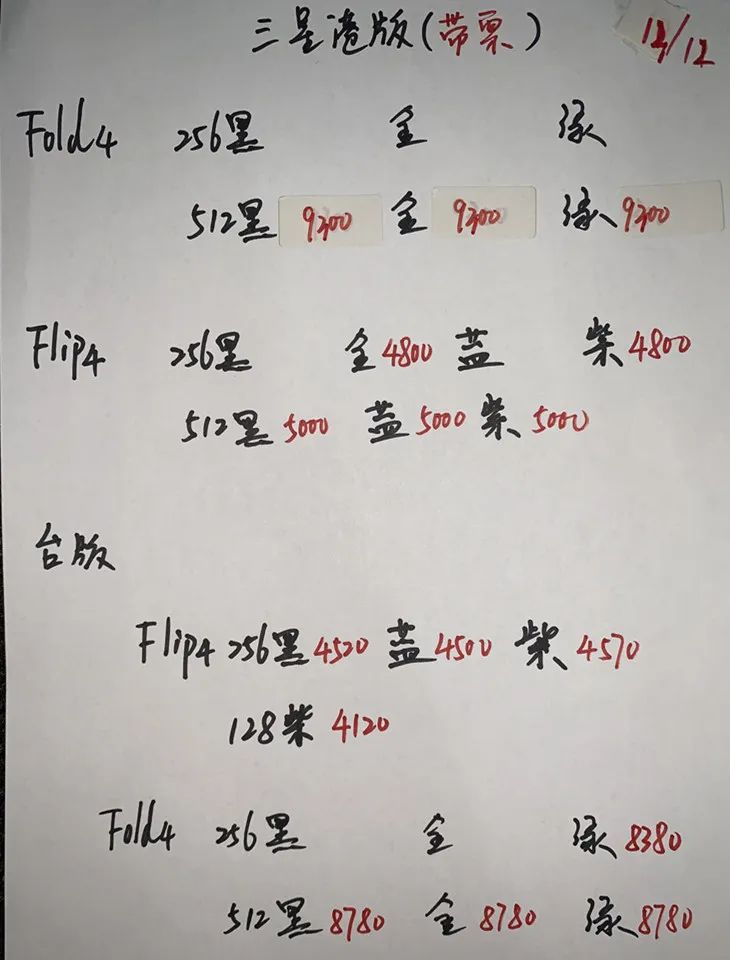 三星港版(带票) 12/12
Fold4 256黑 金 绿
512黑 9300 金 9300 绿 9300
Flip4 256黑 金 4800 蓝 紫 4800
512黑 5000 蓝 5000 紫 5000
台版
Flip4 256黑 4520 蓝 4500 紫 4570
128紫 4120
Fold4 256黑 金 绿 8380
512黑 8780 金 8780 绿 8780